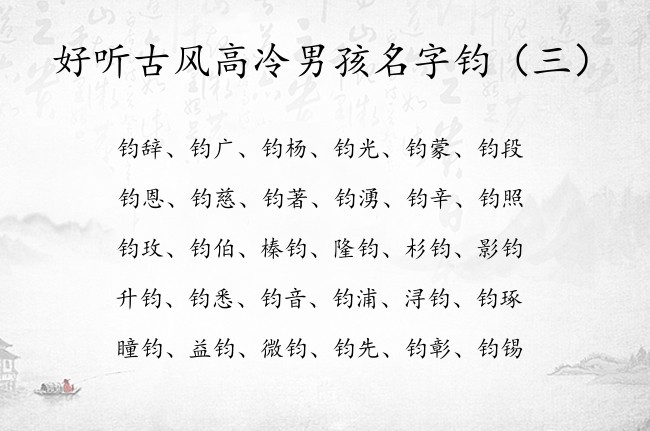 好听古风高冷男孩名字钧（三）
钧辞、钧广、钧杨、钧光、钧蒙、钧段
钧恩、钧慈、钧著、钧湧、钧辛、钧照
钧玫、钧伯、榛钧、隆钧、杉钧、影钧
升钧、钧悉、钧音、钧浦、浔钧、钧琢
瞳钧、益钧、微钧、钧先、钧彰、钧锡